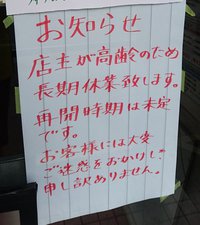 お知らせ
店主が高齢のため
長期休業致します。
再開時期は未定
です。
お客様には大変
ご迷惑をおかけし
申し訳ありません。